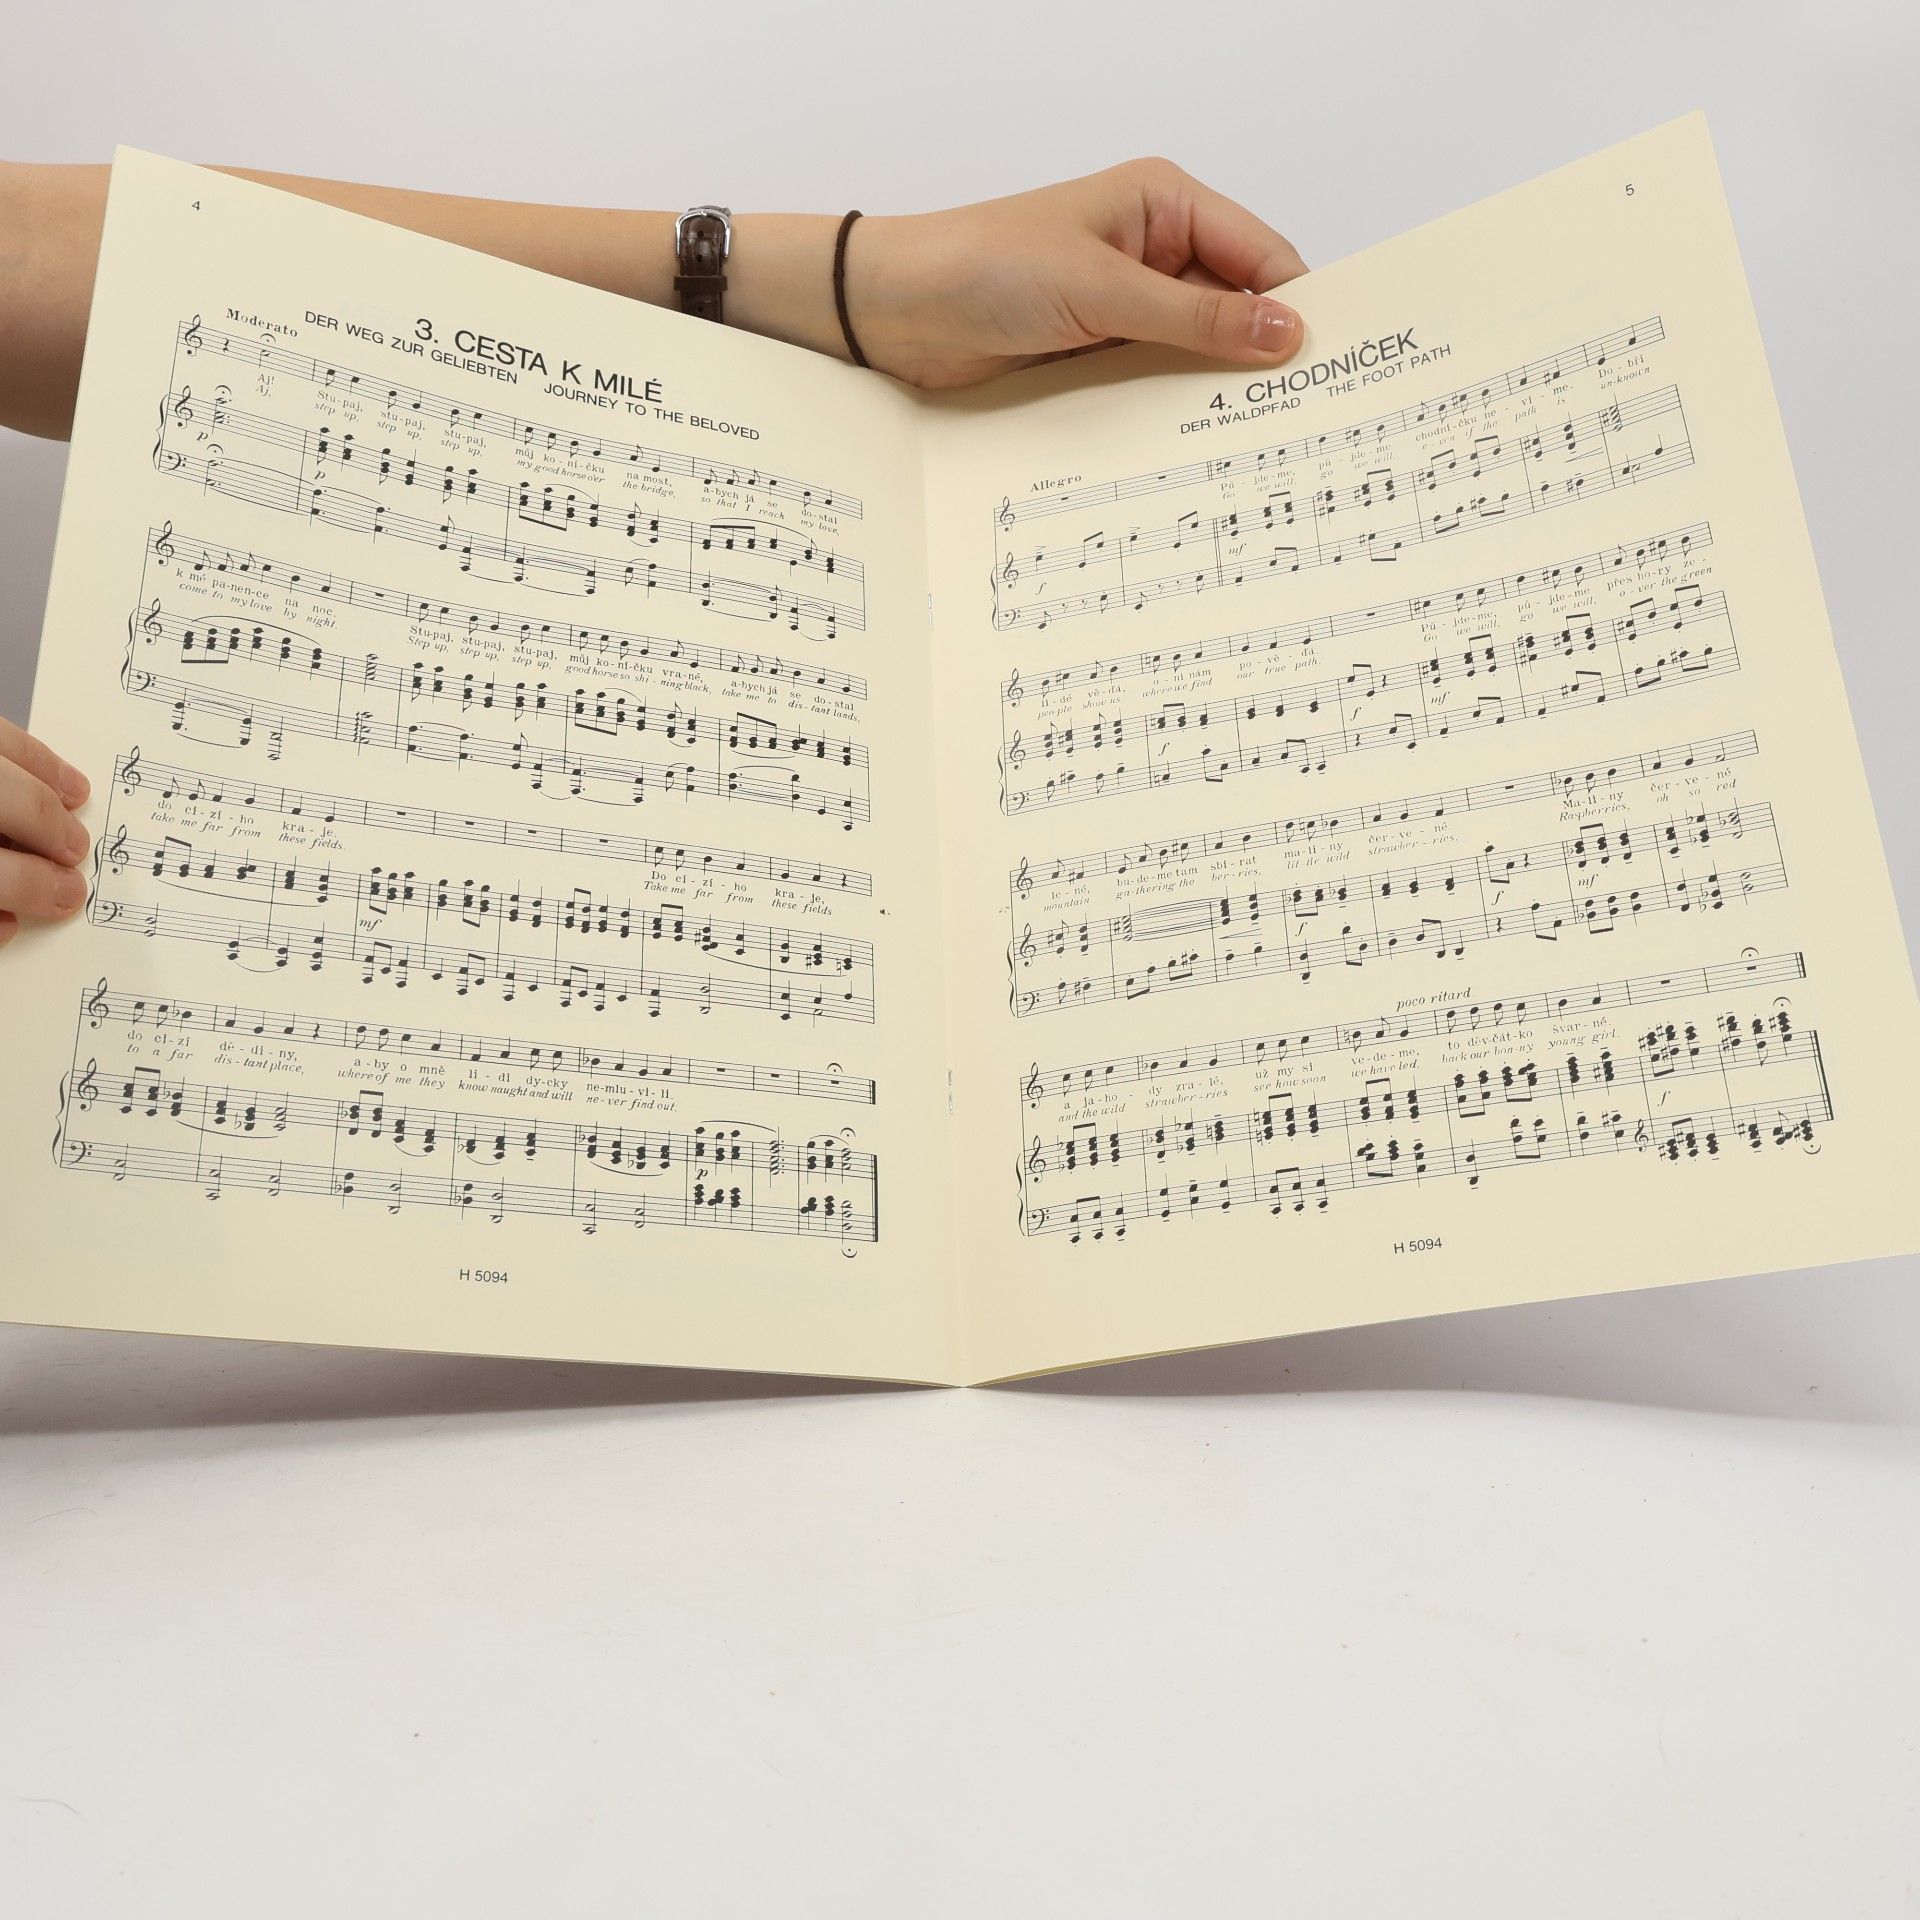 4
3. CESTA K MILÉ
DER WEG ZUR GELIEBTEN JOURNEY TO THE BELOVED
Moderato
Aj! Stu-paj, stu-paj, stu-paj, můj ko-ní-čku na most, a-bych já se do-stal
Aj, step up, step up, step up, my good horse o'er the bridge, so that I reach my love,
p
p
k mé pa-nen-ce na noc. Stu-paj, stu-paj, stu-paj, můj ko-ní-čku vra-né, a-bych já se do-stal
come to my love by night. Step up, step up, step up, good horse so shi-ning black, take me to dis-tant lands,
do ci-zí-ho kra-je. Do ci-zí-ho kra-je,
take me far from these fields. Take me far from these fields
mf
do ci-zí dě-di-ny, a-by o mně li-di dy-cky ne-mlu-vi-li.
to a far dis-tant place, where of me they know naught and will ne-ver find out.
p
H 5094
5
4. CHODNÍČEK
DER WALDPFAD THE FOOT PATH
Allegro
Pů-jde-me, pů-jde-me chodní-čku ne-ví-me. Do-bří
Go we will, go we will, e-ven if the path is un-known
f mf
li-dé vě-dá, o-ni nám po-vě-dá. Pů-jde-me, pů-jde-me přes ho-ry ze-
peo-ple show us where we find our true path. Go we will, go we will, o-ver the green
f f mf
le-né, bu-de-me tam sbí-rat ma-li-ny čer-ve-né. Ma-li-ny čer-ve-né
mountain ga-thering the ber-ries, lit-tle wild strawber-ries. Raspberries, oh so red
f f mf
poco ritard.
a ja-ho-dy zra-lé, už my si ve-de-me, to děv-čát-ko švar-né.
and the wild strawber-ries see how soon we have led, back our bon-ny young girl.
f
H 5094